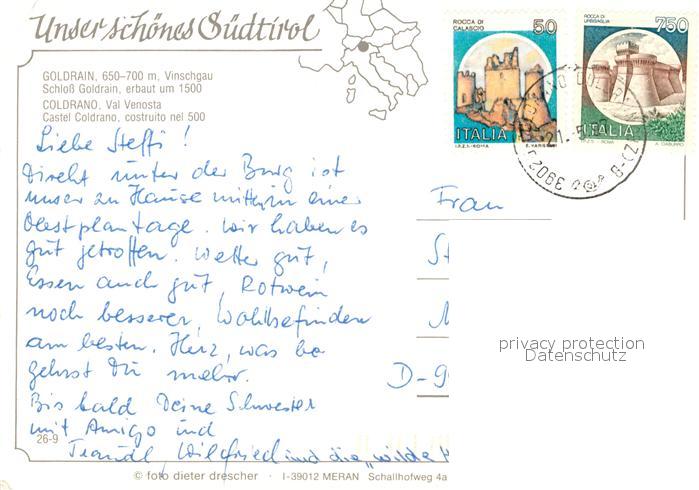 Unser schönes Südtirol
GOLDRAIN, 650–700 m, Vinschgau
Schloß Goldrain, erbaut um 1500
COLDRANO, Val Venosta
Castel Coldrano, costruito nel 500
Liebe Steffi!
Direkt unter der Burg ist
unser zu Hause mitten in einer
Obstplantage. Wir haben es
gut getroffen. Wetter gut,
Essen auch gut, Rotwein
noch besserer, Wohlbefinden
am besten. Herz, was be
gehrst Du mehr.
Bis bald Deine Schwester
mit Amigo und
Traudl, Wilfried und die „wilde
26-9
© foto dieter drescher · I-39012 MERAN Schallhofweg 4a
ROCCA DI
CALASCIO
50
ITALIA
I.P.Z.S.-ROMA
ROCCA DI
URBISAGLIA
750
ITALIA
I.P.Z.S. - ROMA
3902
Frau
St
D-9
privacy protection
Datenschutz